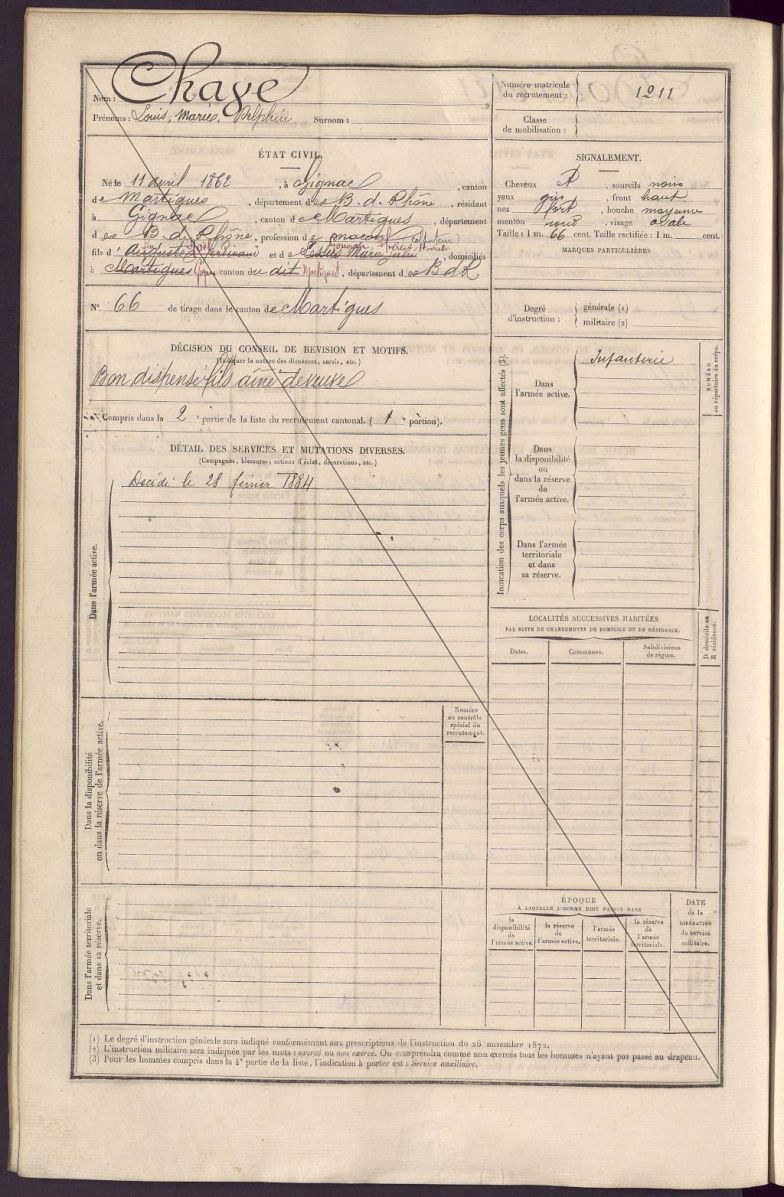 Nom : Chave
Prénoms : Louis, Marius, Delphin Surnom :
Numéro matricule du recrutement : 1211
Classe de mobilisation :
ÉTAT CIVIL.
Né le 11 avril 1862, à Gignac, canton
de Martigues, département des B. d. Rhône, résidant
à Gignac, canton de Martigues, département
des B. d. Rhône, profession de maçon
fils d' et de domiciliés
à Martigues canton du dit Martigues, département des B d R
N° 66 de tirage dans le canton de Martigues
SIGNALEMENT.
Cheveux , sourcils noirs
yeux gris, front haut
nez fort, bouche moyenne
menton rond, visage ovale
Taille : 1 m. 66 cent. Taille rectifiée : 1 m. cent.
MARQUES PARTICULIÈRES
Degré d'instruction : générale (1)
militaire (2)
DÉCISION DU CONSEIL DE REVISION ET MOTIFS.
(Indiquer la nature des dispenses, sursis, etc.)
Bon dispensé fils aîné de veuve
Compris dans la 2e partie de la liste du recrutement cantonal. ( 1 portion).
DÉTAIL DES SERVICES ET MUTATIONS DIVERSES.
(Campagnes, blessures, actions d'éclat, décorations, etc.)
Décédé le 28 février 1884
Dans l'armée active.
Dans la disponibilité
ou dans la réserve de l'armée active.
Numéro
au contrôle
spécial du
recrutement.
Dans l'armée territoriale
et dans sa réserve.
Indication des corps auxquels les jeunes gens sont affectés (3).
Dans
l'armée active.
Infanterie
NUMÉRO
au répertoire du corps.
Dans
la disponibilité
ou
dans la réserve
de
l'armée active.
Dans l'armée
territoriale
et dans
sa réserve.
LOCALITÉS SUCCESSIVES HABITÉES
PAR SUITE DE CHANGEMENTS DE DOMICILE OU DE RÉSIDENCE.
Dates. Communes. Subdivisions
de région.
D domicile ou
R résidence.
ÉPOQUE
À LAQUELLE L'HOMME DOIT PASSER DANS
la
disponibilité
de
l'armée active.
la réserve
de
l'armée active.
l'armée
territoriale.
la réserve
de
l'armée
territoriale.
DATE
de la
LIBÉRATION
du service
militaire.
(1) Le degré d'instruction générale sera indiqué conformément aux prescriptions de l'instruction du 26 novembre 1872.
(2) L'instruction militaire sera indiquée par les mots : exercé ou non exercé. On comprendra comme non exercés tous les hommes n'ayant pas passé au drapeau.
(3) Pour les hommes compris dans la 4e partie de la liste, l'indication à porter est : Service auxiliaire.